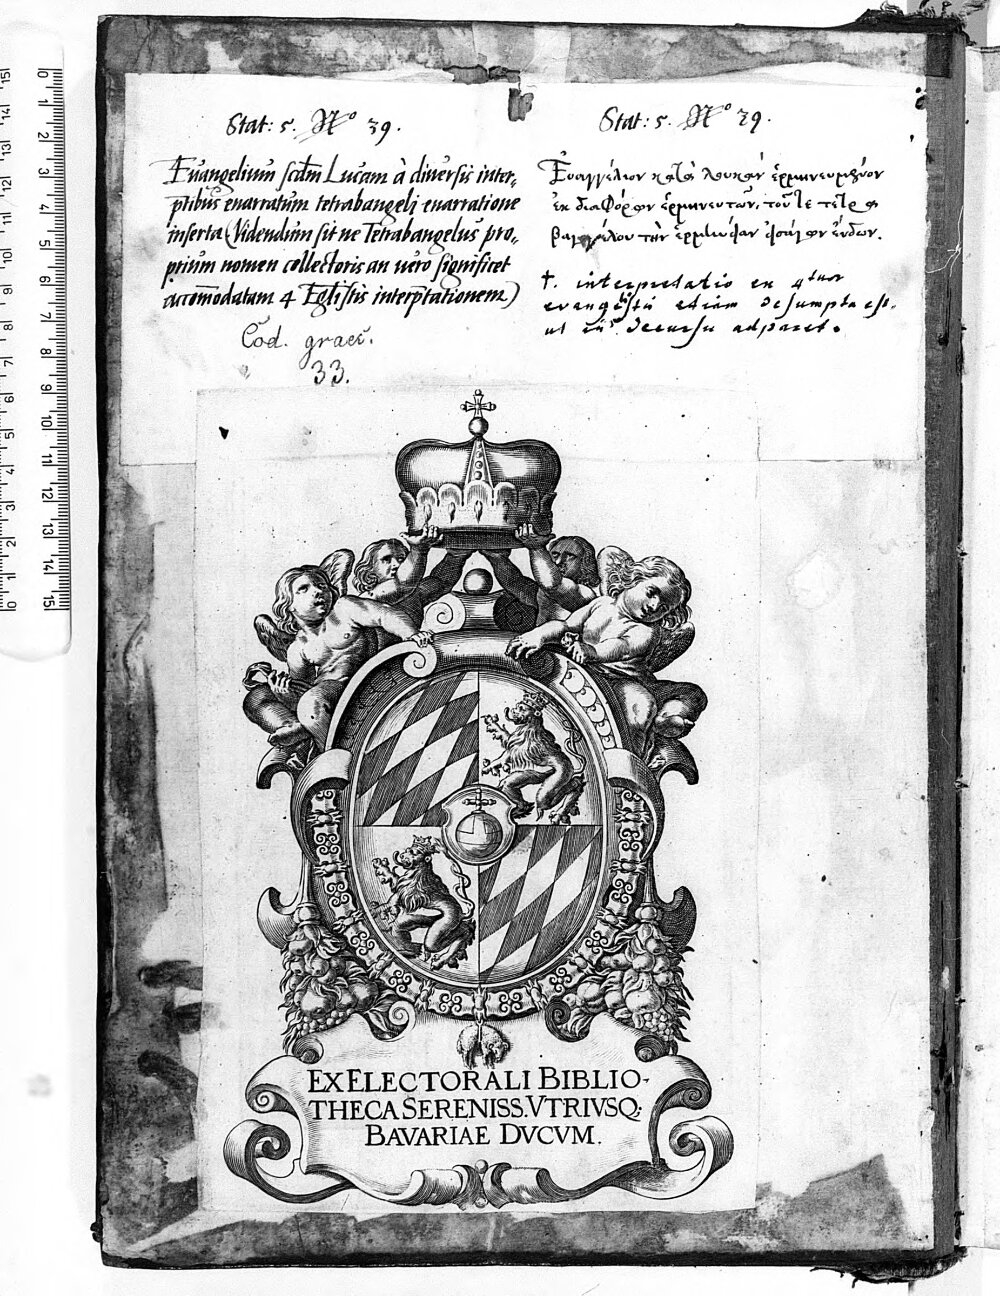 Stat: 5. No 39.
Euangelium scdm Lucam à diuersis inter,,
ptibus enarratum tetrabangeli enarratione
inserta (Videndum sit ne Tetrabangelus pro,,
prium nomen collectoris an uero significet
accomodatam 4 Eglistis interptationem)
Cod. graec.
33.
Stat: 5. No 39.
Ευαγγέλιον κατὰ λουκαν ἑρμηνευμένον
ἐκ διαφόρων ἑρμηνευτῶν, τοῦ τε τετρα
βαγγέλου τὴν ἑρμηνείαν
†. interpretatio ex 4tuor
etiam desumpta est.
ut decursu adparet.
EX ELECTORALI BIBLIO-
THECA SERENISS. VTRIVSQ;
BAVARIAE DVCVM.
0 1 2 3 4 5 6 7 8 9 10 11 12 13 14 15
0 1 2 3 4 5 6 7 8 9 10 11 12 13 14 15